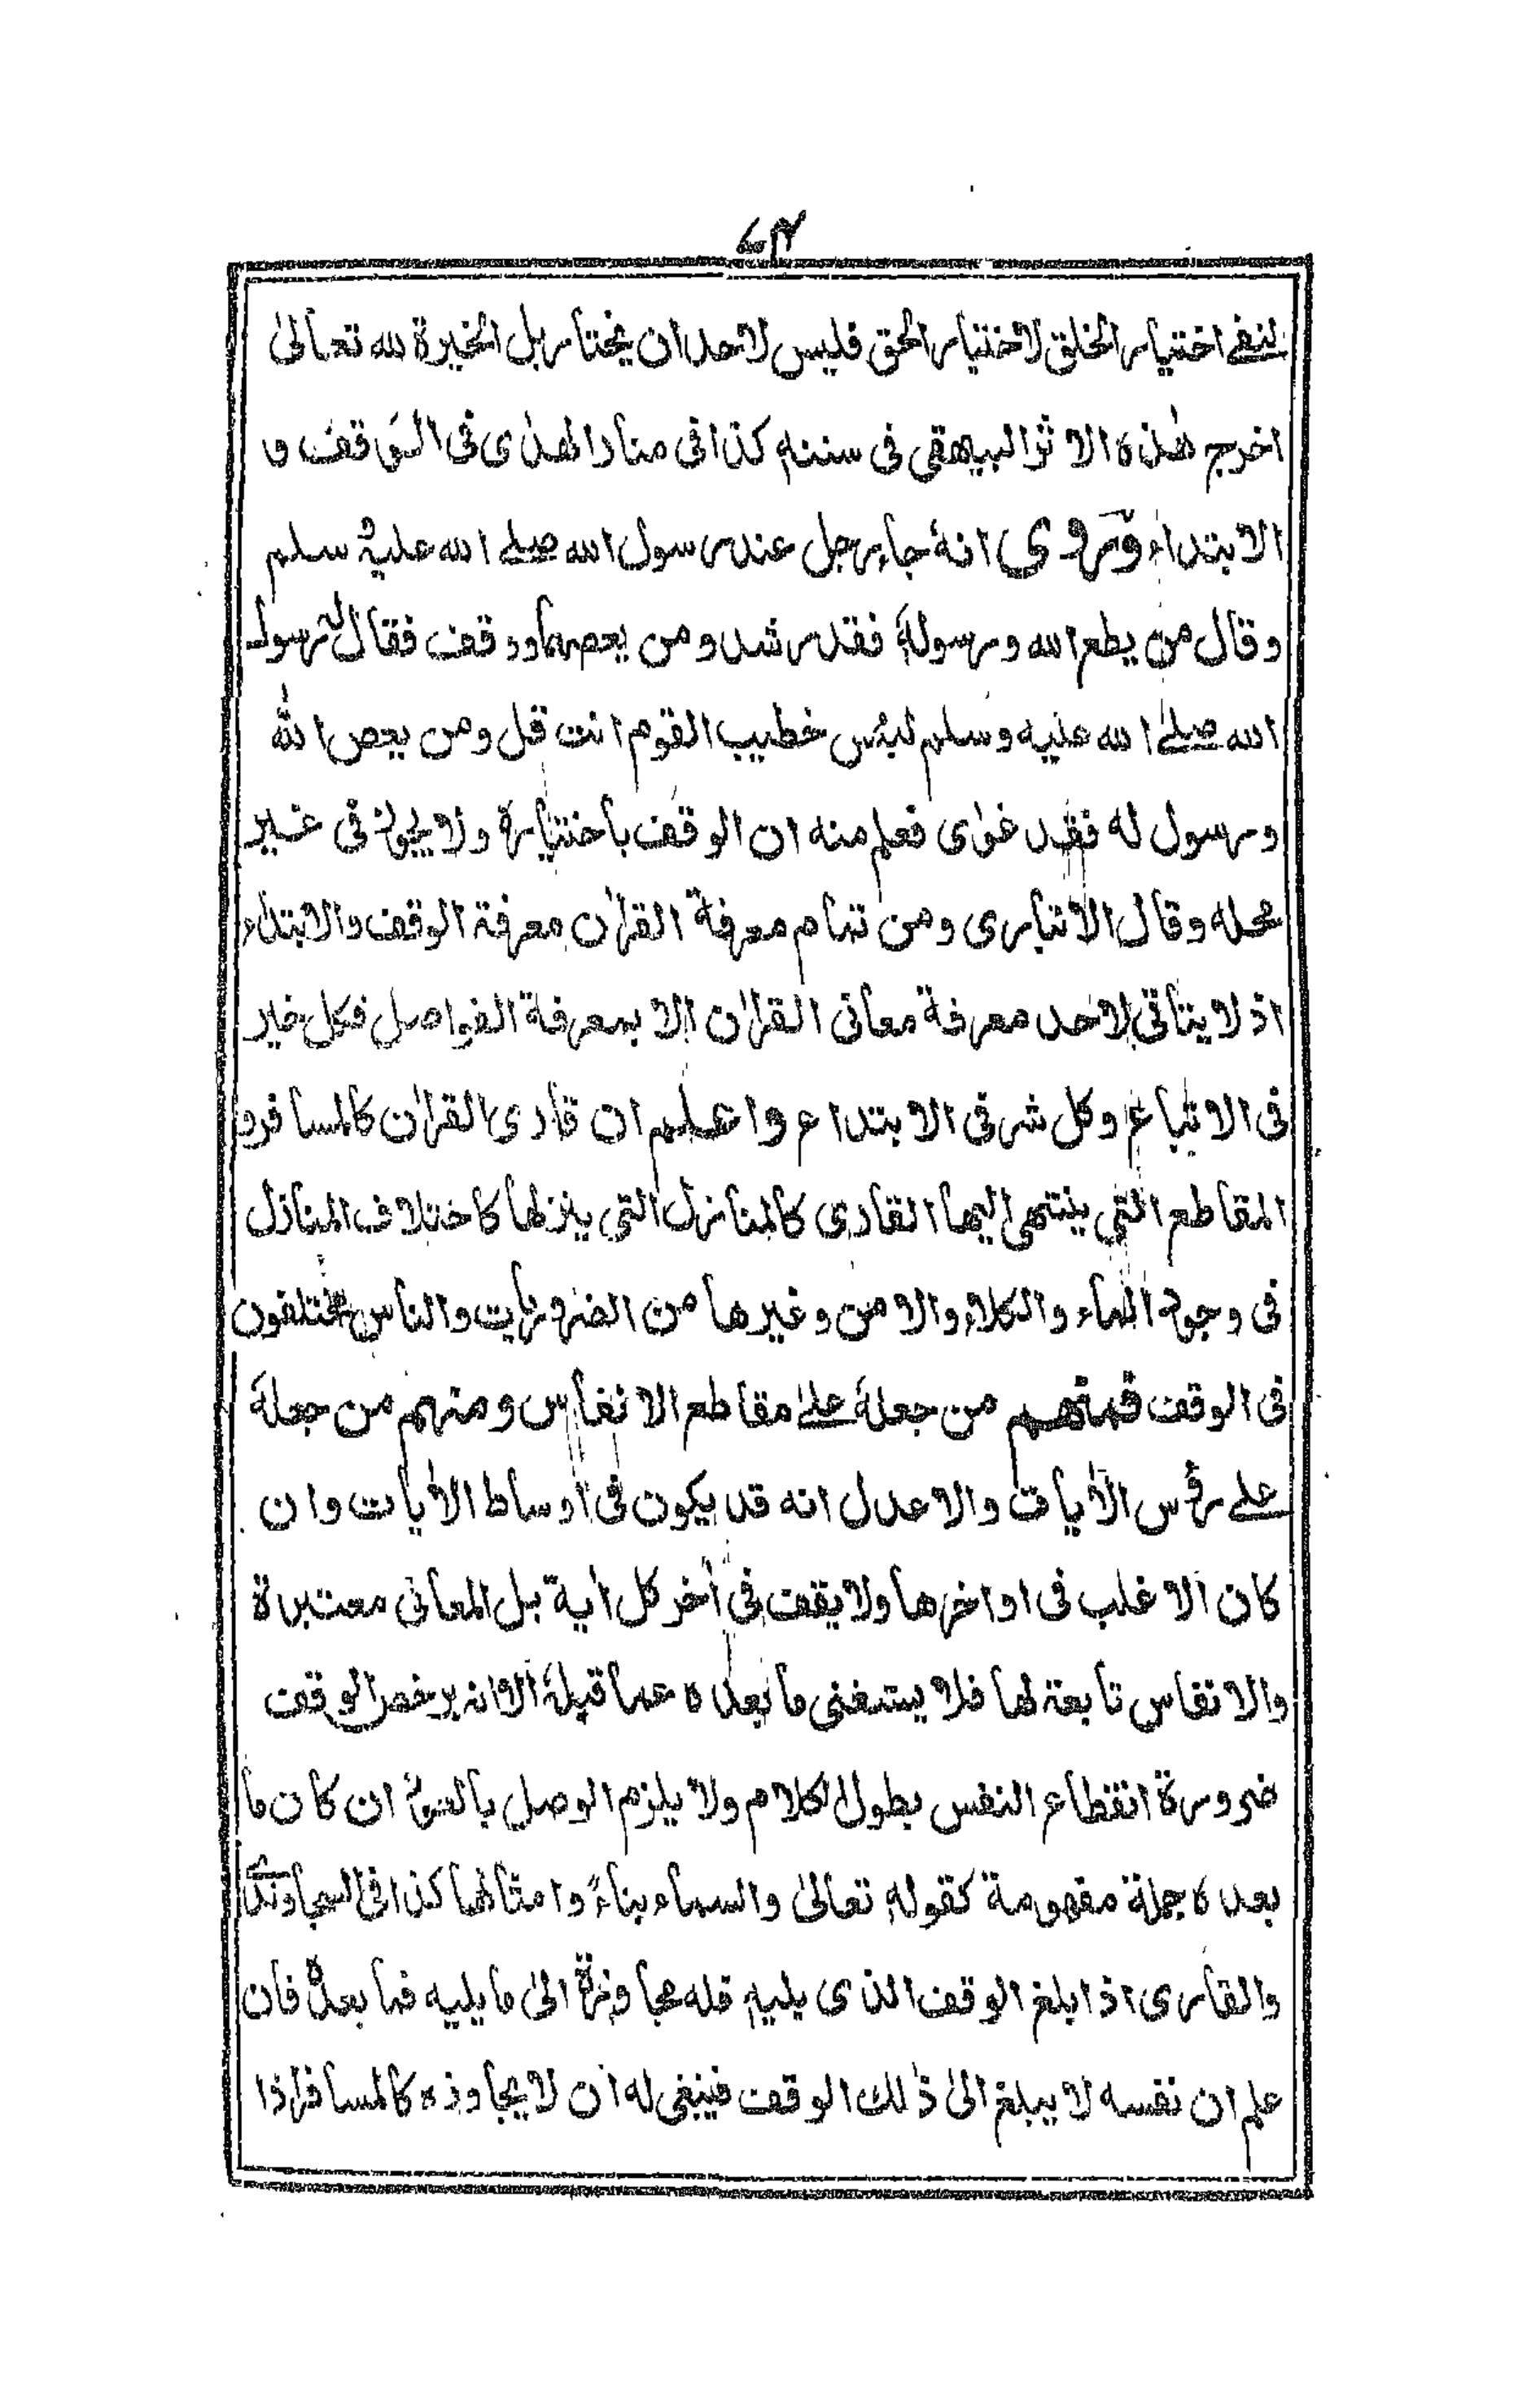 لنفی اختیار الخلق لاختیار الحق فلیس لاحد ان یختار بل الخیرة لله تعالیٰ
اخرج هٰذه الاثر البیهقی فی سننهٖ کذا فی منار الهدٰی فی الوقف و
الابتداء ورُوی انهٗ جاء رجل عند رسول الله صلے الله علیهٖ سلم
وقال من یطع الله ورسولهٗ فقد رشد ومن یعصهما ووقف فقال له رسول
الله صلے الله علیه وسلم لبئس خطیب القوم انت قل ومن یعص الله
ورسول له فقد غوٰی فعلم منه ان الوقف باختیارهٖ ولا یجوز فی غیر
محله وقال الانباری ومن تمام معرفة القراٰن معرفة الوقف والابتداء
اذ لا یتأتی لاحد معرفة معانی القراٰن الا بمعرفة الفواصل فکل خیر
فی الاتباع وکل شر فی الابتداع واعلم ان قاری القراٰن کالمسافر و
المقاطع التی ینتهی الیها القاری کالمنازل التی ینزلها کاختلاف المنازل
فی وجود الماء والکلاء والامن وغیرها من الضروریات والناس مختلفون
فی الوقف فمنهم من جعلهٗ علے مقاطع الانفاس ومنهم من جعلهٗ
علے رؤس الاٰیات والاعدل انه قد یکون فی اوساط الاٰیات وان
کان الاغلب فی اواخرها ولا یقف فی اٰخر کل اٰیة بل المعانی معتبرة
والانفاس تابعة لها فلا یستغنی ما بعده عما قبلهٗ الا انه یرخص الوقف
ضرورة انقطاع النفس بطول الکلام ولا یلزم الوصل بالعود ان کان ما
بعده جملة مفهومة کقولهٖ تعالیٰ والسماء بناءً وامثالها کذا فی السجاوندی
والقاری اذا بلغ الوقف الذی یلیهٖ فله مجاوزة الیٰ ما یلیه فما بعدهٗ فان
علم ان نفسه لا یبلغ الیٰ ذٰلک الوقف فینبغی له ان لا یجاوزه کالمسافر اذا